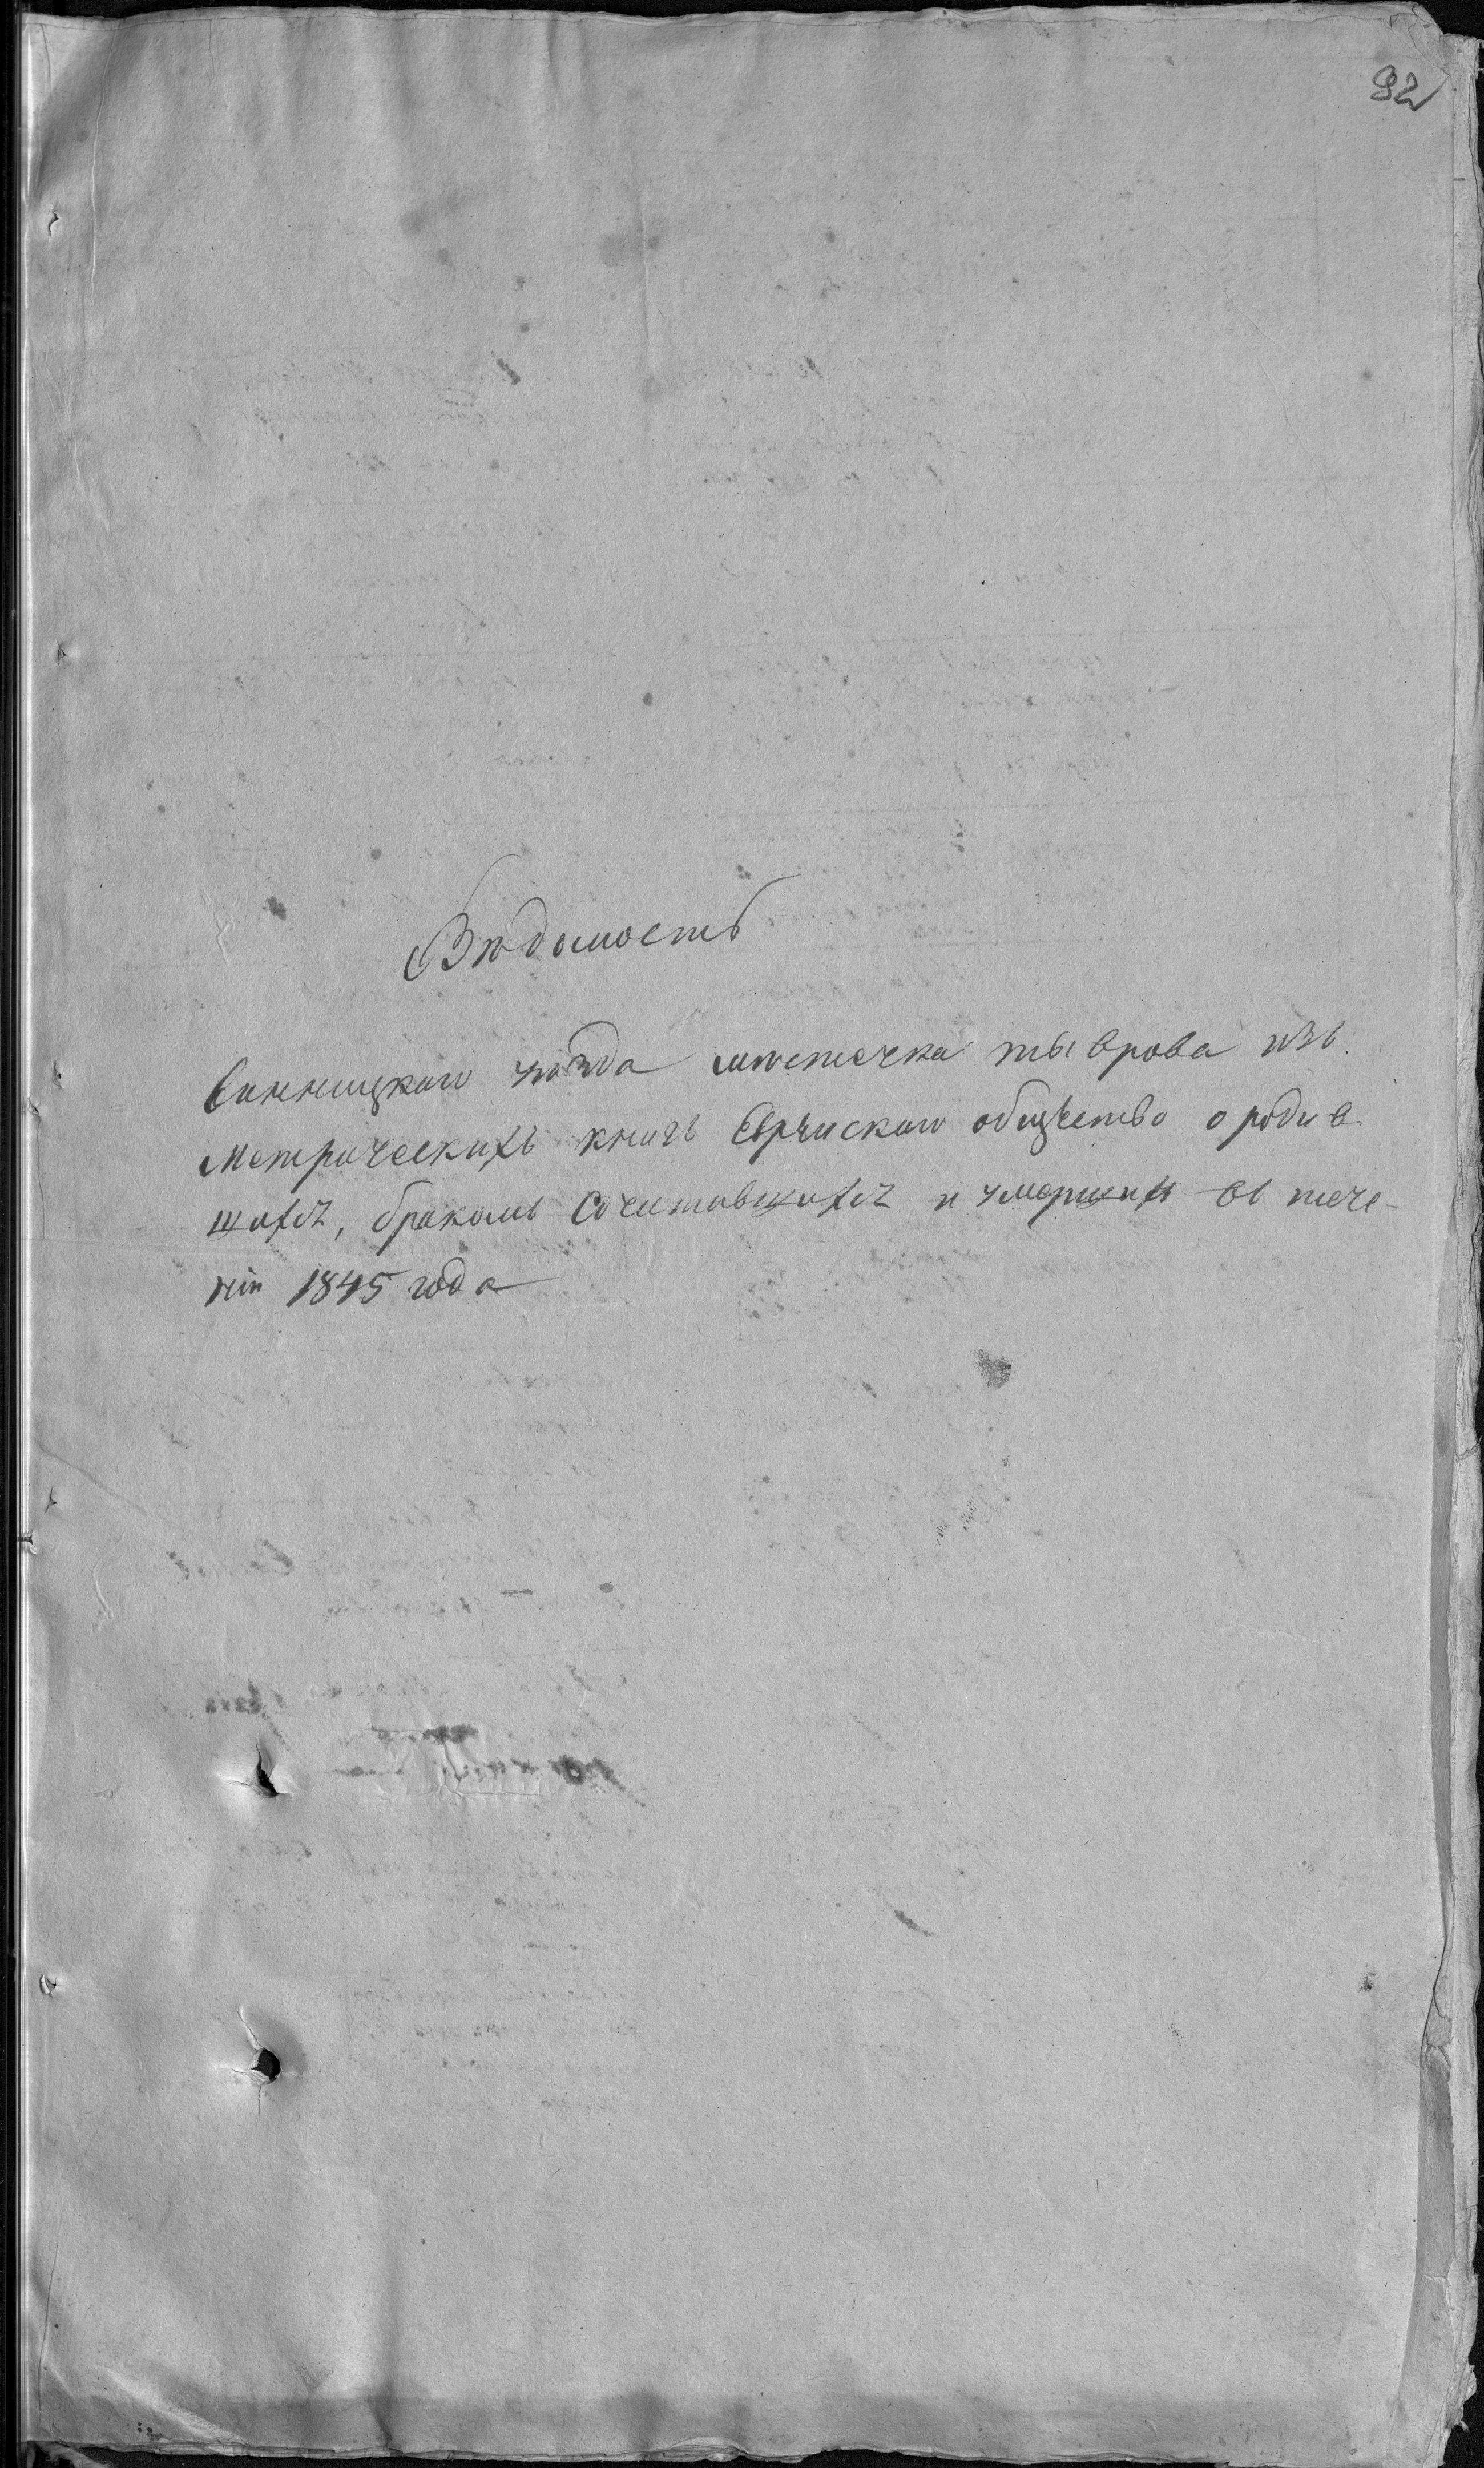 92
Вѣдомость
Винницкаго уѣзда мѣстечка тыврова изъ
Метрическихъ книгъ Еврейскаго общества о родив
шихся, бракомъ Сочитавшихся и умершихъ въ тече-
ніи 1845 года